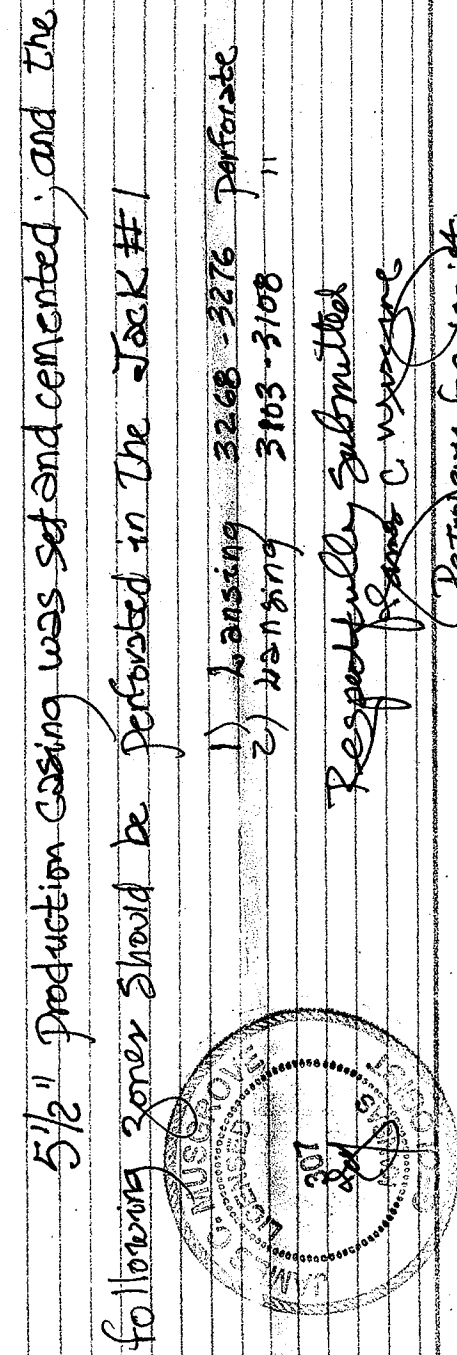 5½" production casing was set and cemented, and the
following zones should be perforated in The Jack #1
1) Lansing 3268-3276 perforate
2) Lansing 3103-3108 "
Respectfully Submitted
James C. Musgrove
Petroleum Geologist
JAMES C. MUSGROVE
LICENSED
307
KANSAS
GEOLOGIST